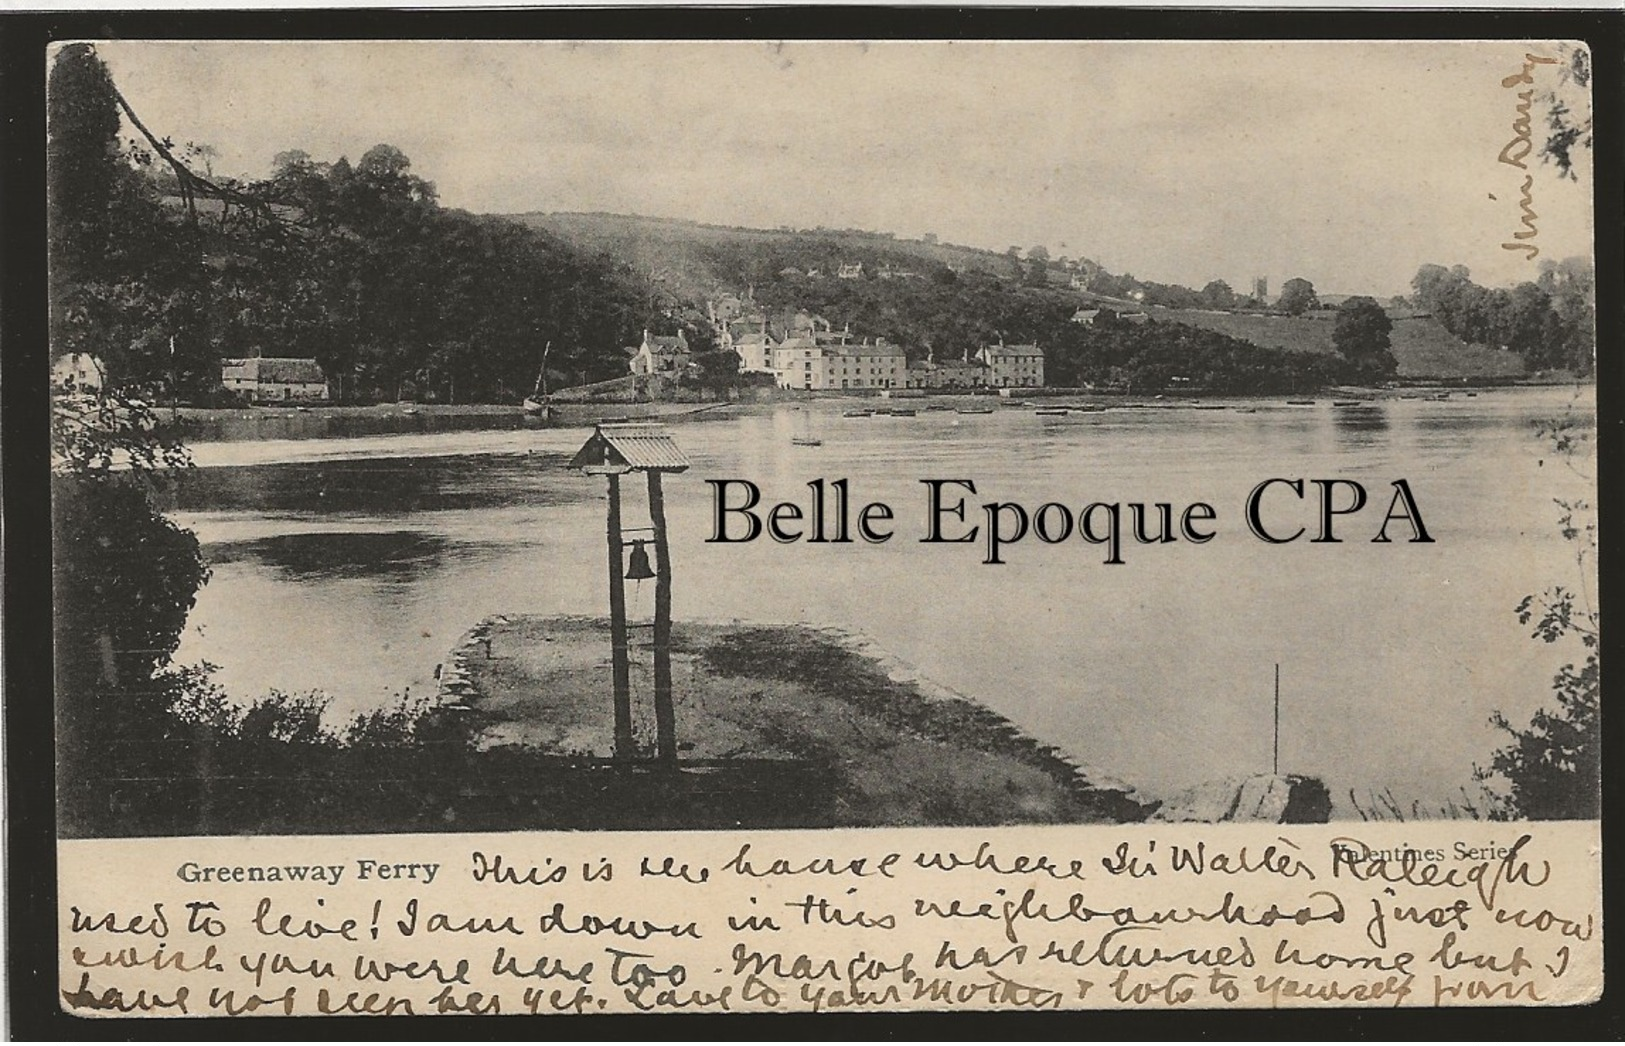 Jim Dandy
Belle Epoque CPA
Greenaway Ferry
Valentines Series
This is the house where Sir Walter Raleigh
used to live! I am down in this neighbourhood just now
& wish you were here too. Margot has returned home but I
have not seen her yet. Love to your Mother & lots to yourself from